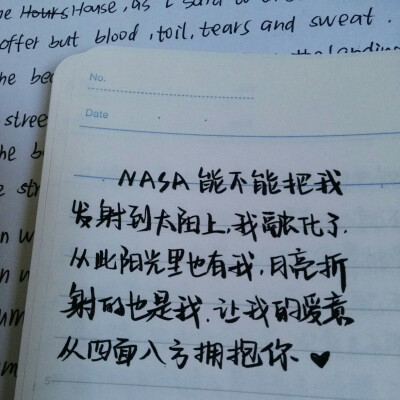 Hours House, as I said to
offer but blood, toil, tears and sweat.
No.
Date
the be
stree
the b
NASA能不能把我
发射到太阳上,我融化了.
从此阳光里也有我,月亮折
射的也是我.让我的爱意
从四面八方拥抱你 ♥